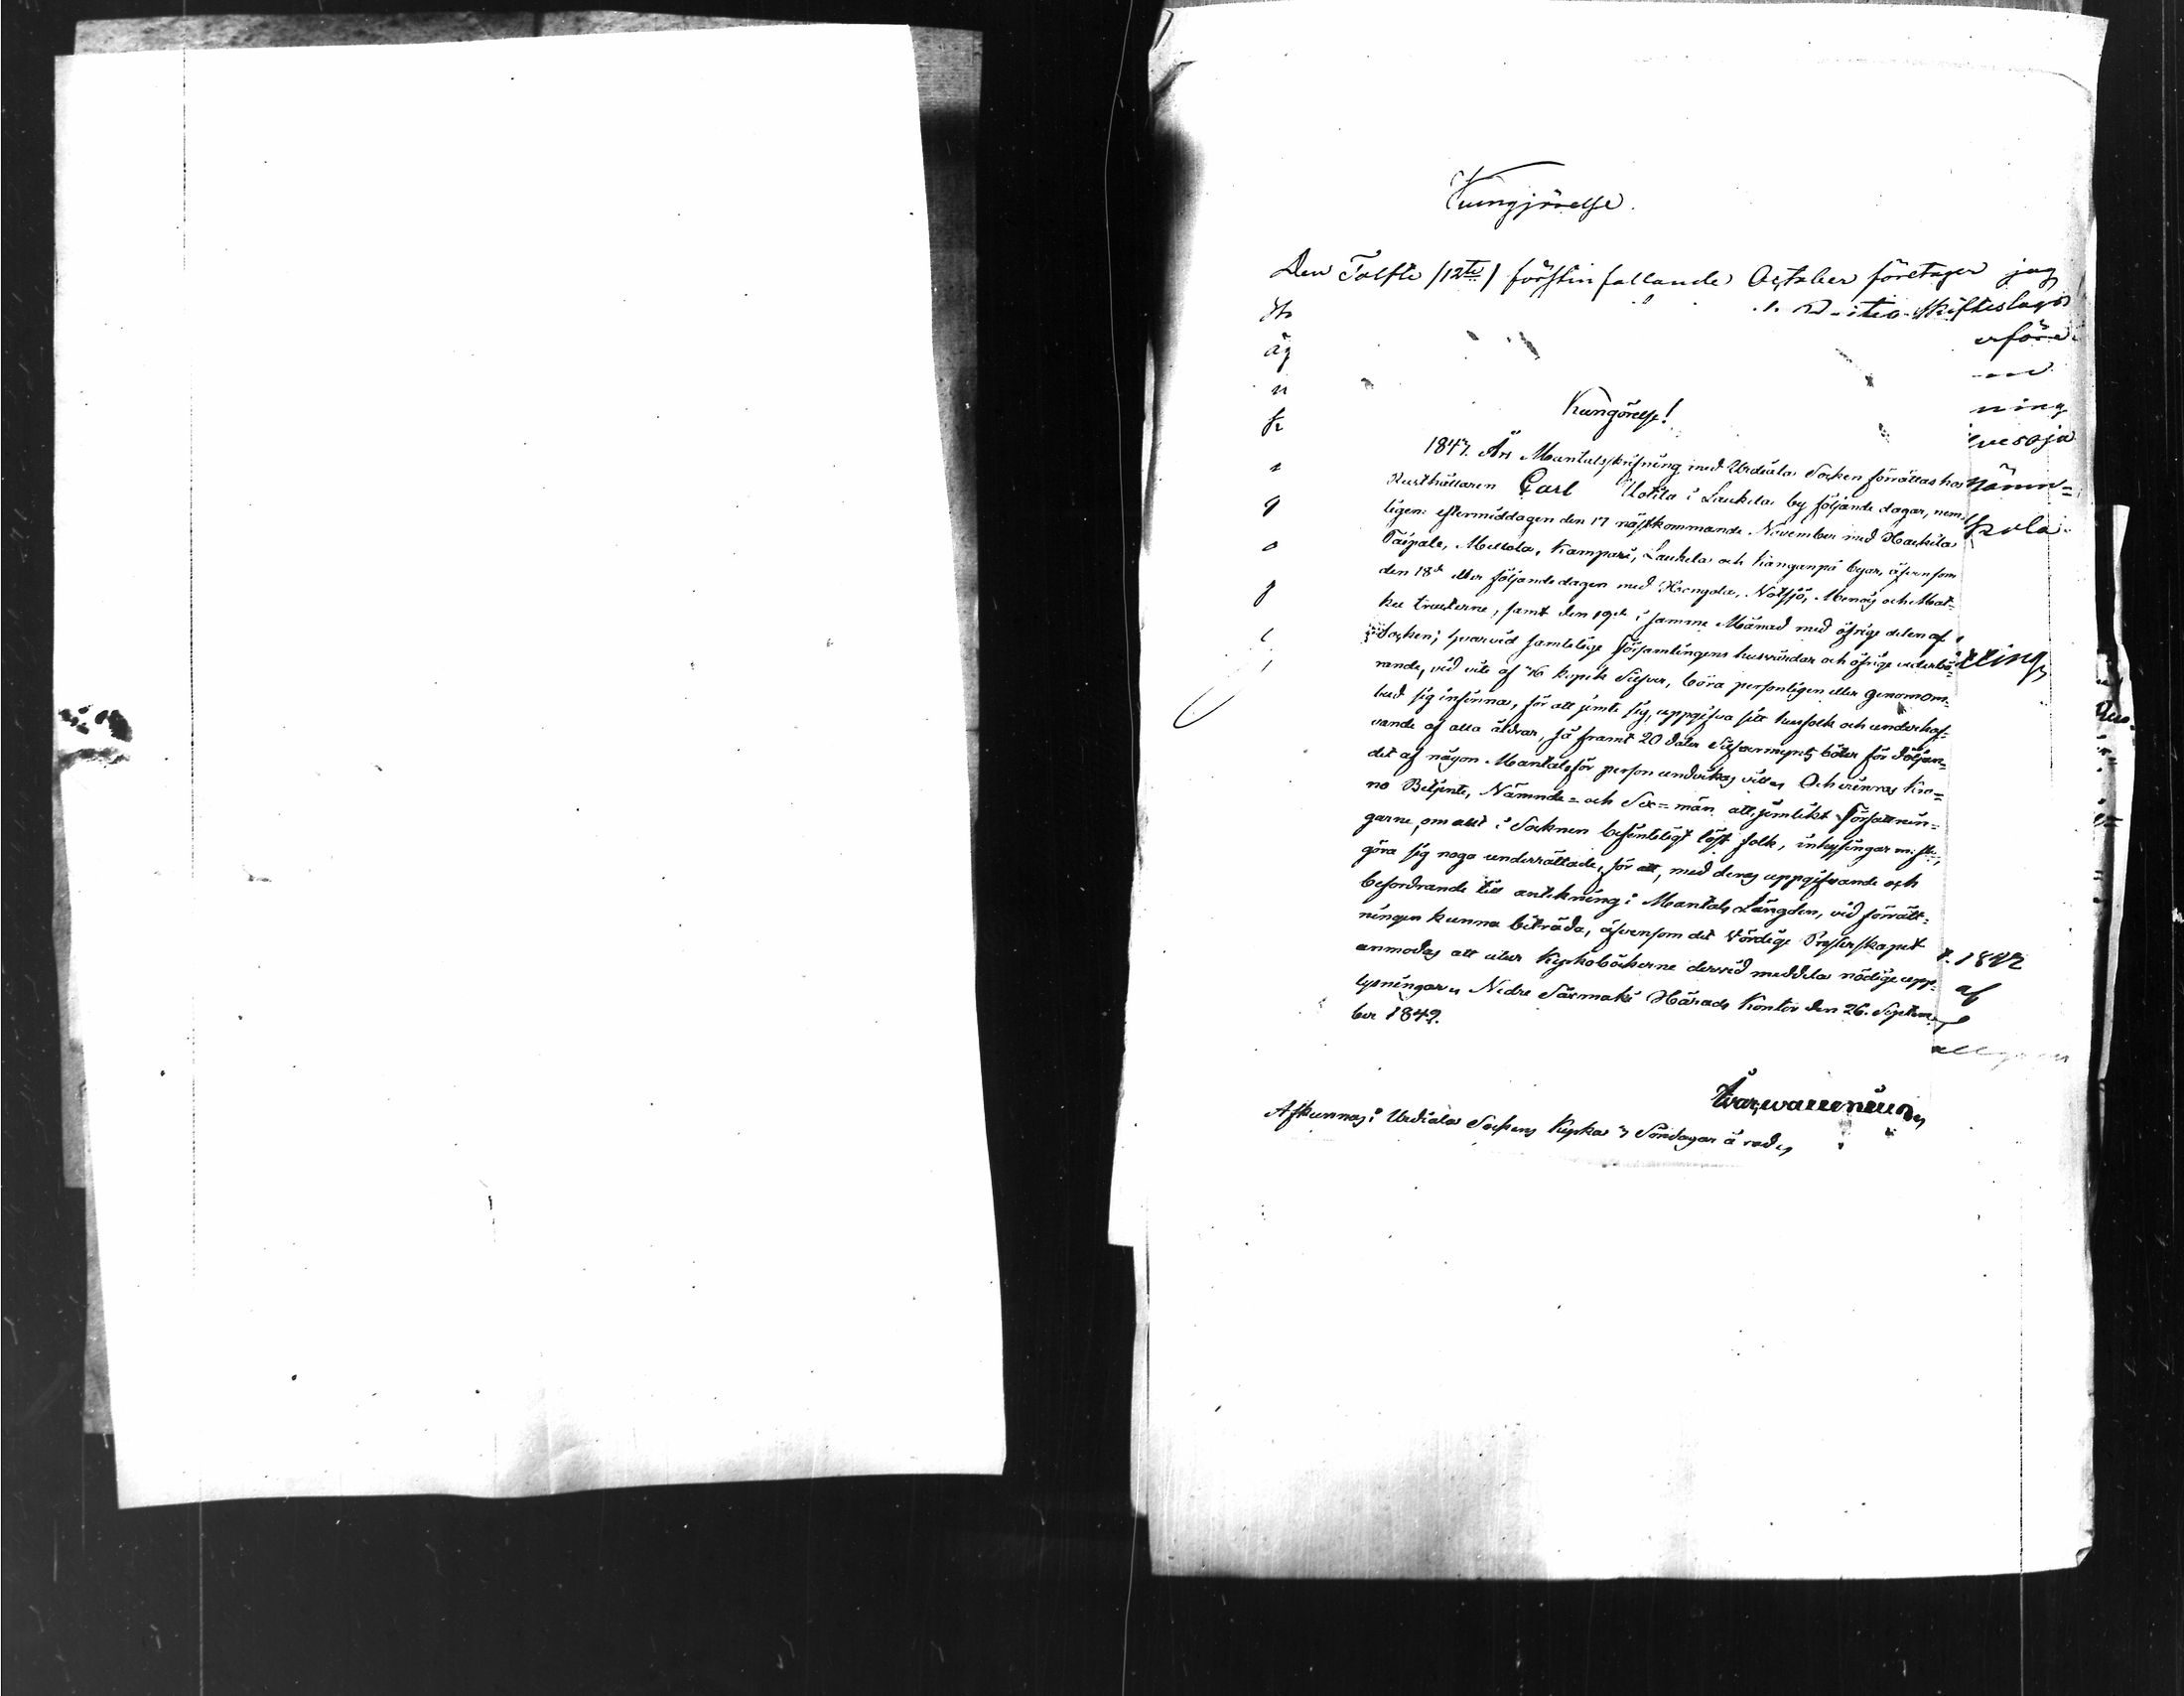 Kungjörelse.
Den Tolfte /12te/ förstinfallande October företager jag
skifteslags
ning
Kungörelse!
1847. Års Mantalsskrifning med Urdiala Socken förrättas hos
Rusthållaren Carl Uotila i Laukela by följande dagar, nem¬
ligen: eftermiddagen den 17 nästkommande November med Hackila
Taipale, Mellola, Kampari, Laukela och Kanganpä byar, äfvensom
den 18de eller följande dagen med Hongola, Nötsjö, Menoij och Mat¬
ku tracterne, samt den 19de i samme Månad med öfrige delen af
Socken; hvarvid samtelige församlingens husvärdar och öfrige vederbö¬
rande, vid vite af kopek Silfver, böra personligen eller genom om¬
bud sig infinna, för att jemte sig, uppgifva sitt husfolk och underhaf¬
vande af alla åldrar, så framt 20 daler Silfvermynts böter för döljan¬
det af någon Mantalsför person undvikas vill, Och erinras Kro=
no Betjente, Nämnde= och Sex=män att jemlikt Författnin¬
garne, om allt i Socknen befinteligt löst folk, inhysingar m: fl:,
göra sig noga underrättade, för att, med deras uppgifvande och
befordrande till antekning i Mantals Längden, vid förrätt¬
ningen kunna biträda, äfvensom det Vördige Presterskapet
anmodas att utur Kyrkoböckerne dervid meddela nödige upp¬
lysningar, Nedre Saxmäki Härads Kontor den 26. Septem¬
ber 1842.
Afkunnas i Urdiala Sockens Kyrka 3 Söndagar å rad,
t. 1842
af